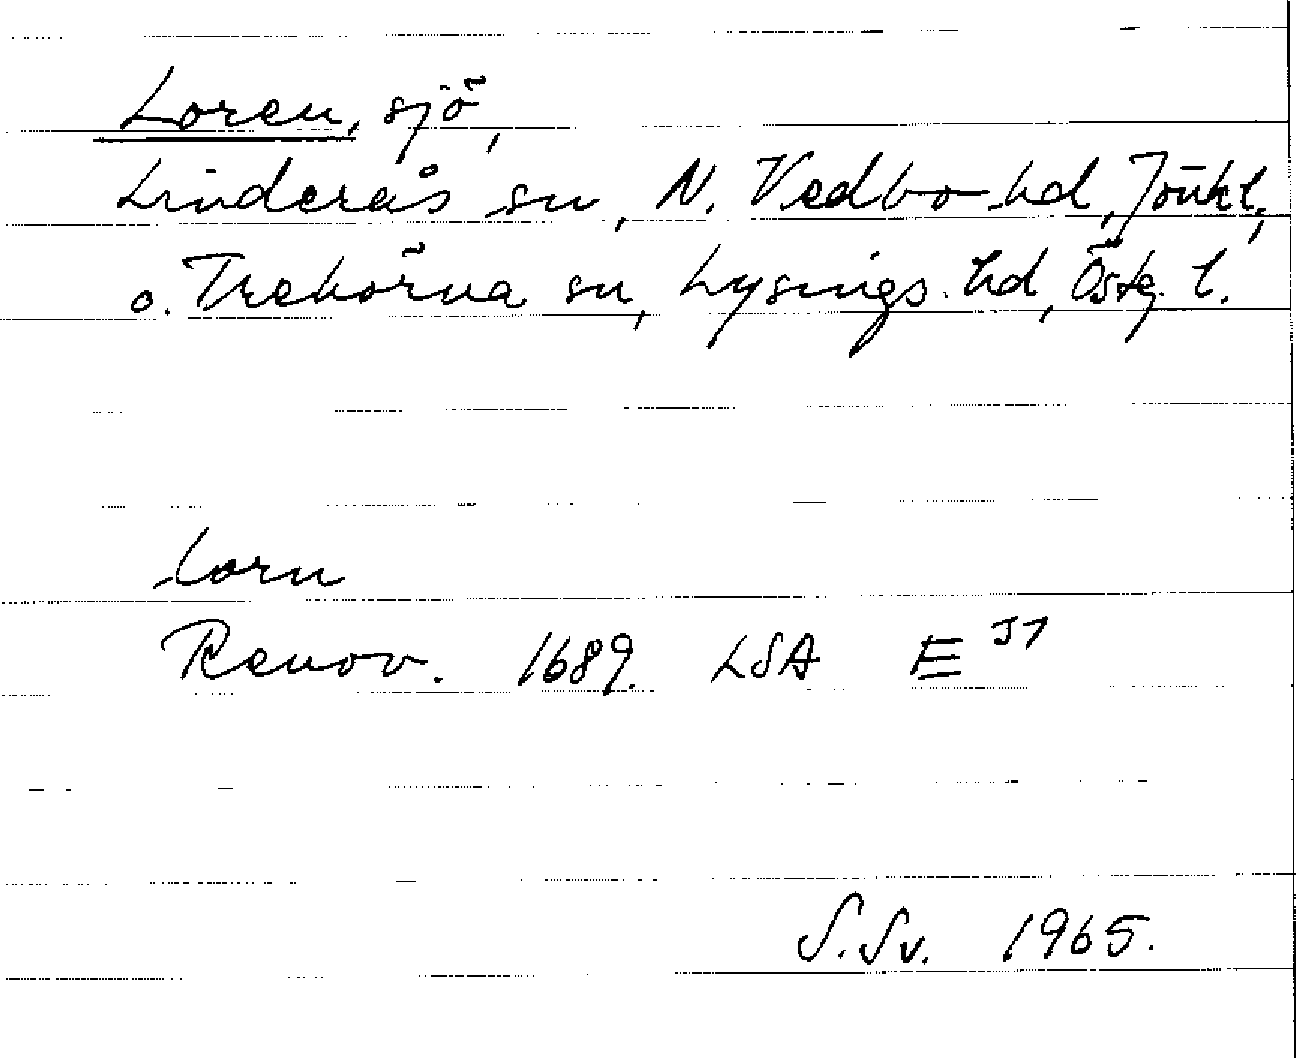 Loren, sjö,
Linderås sn, N. Vedbo hd, Jönk l,
o. Trehörna sn, Lysings hd, Östg. l.
Lorn
Renov. 1689. LSA E 57
S.Sv. 1965.